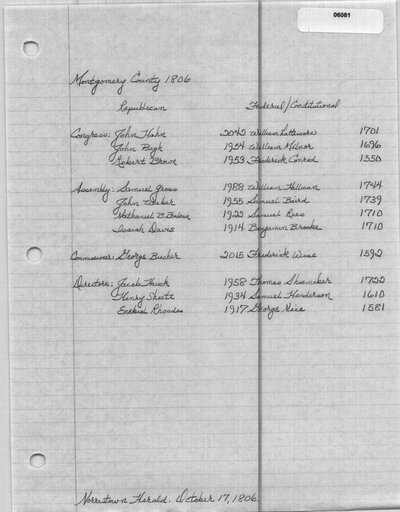 06081
Montgomery County 1806
Republican Federal/Constitutional
Congress: John Hahn 2042 William Lattimore 1701
John Pugh 1954 William Milnor 1696
Robert Brown 1953 Frederick Conrad 1550
Assembly: Samuel Gross 1988 William Hallman 1744
John Weber 1955 Samuel Baird 1739
Nathaniel B. Boileau 1922 Samuel Rees 1710
Isaiah Davis 1914 Benjamin Brooke 1710
Commissioner: George Bucker 2015 Frederick Wise 1592
Directors: Jacob Huick 1958 Thomas Shoemaker 1722
Henry Sheetz 1934 Samuel Henderson 1610
Ezekiel Rhoades 1917 George Nice 1581
Norristown Herald. October 17, 1806.